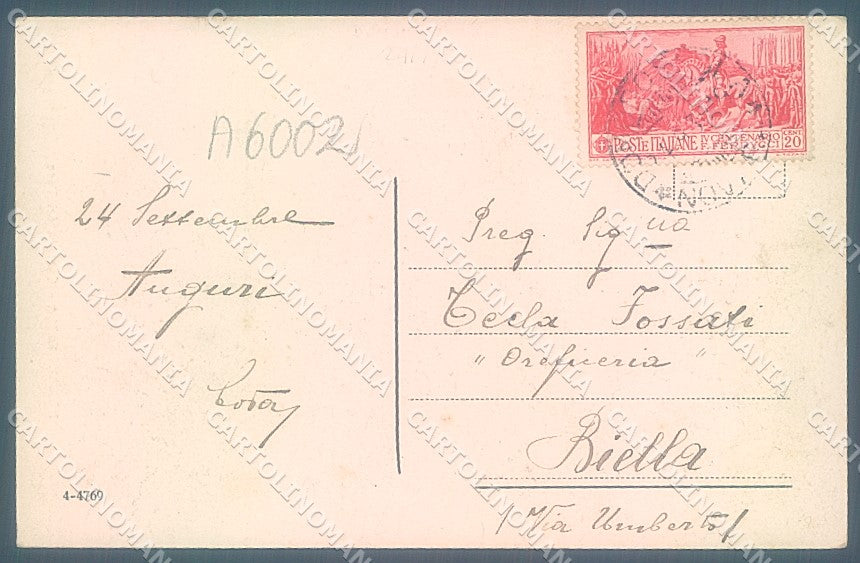 A6002
POSTE ITALIANE IV CENTENARIO F. FERRUCCI CENT 20
24 Settembre
Auguri
Preg. Sig.na
Tecla Fossati
"Oreficeria"
Biella
(Via Umberto)
4-4769
CARTOLINOMANIA